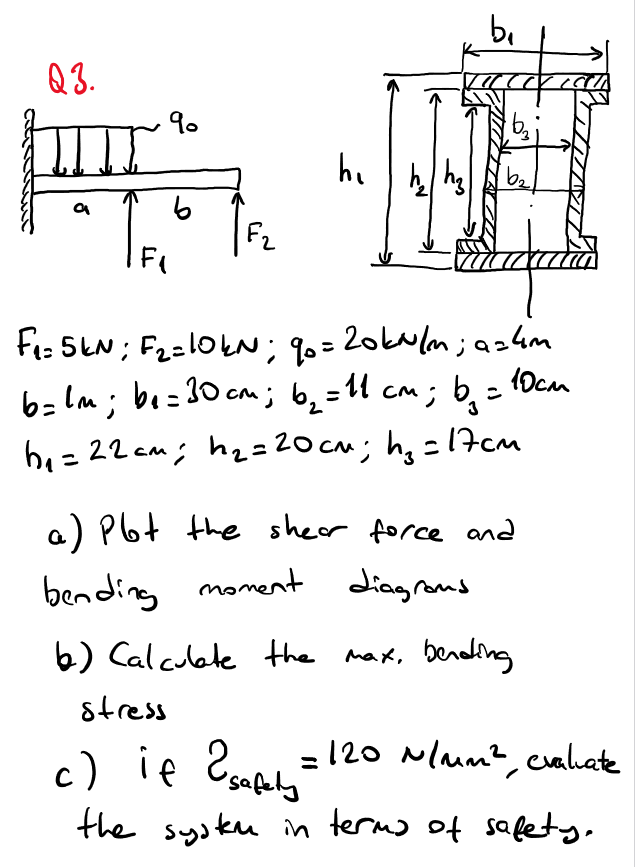 Q3.
q₀
a
b
F₁
F₂
b₁
h₁
h₂
h₃
b₃
b₂
F₁=5kN; F₂=10kN; q₀=20kN/m; a=4m
b=1m; b₁=30cm; b₂=11 cm; b₃=10cm
h₁=22cm; h₂=20cm; h₃=17cm
a) Plot the shear force and
bending moment diagrams
b) Calculate the max. bending
stress
c) if Z safety = 120 N/mm², evaluate
the system in terms of safety.